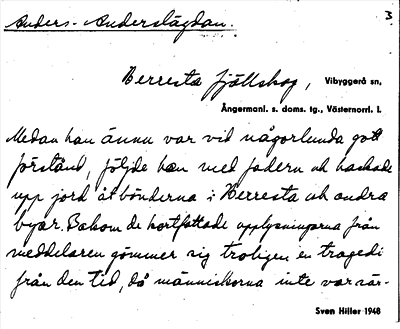 Anders-Anderslägdan.
3
Herresta fjällskog, Vibyggerå sn,
Ångermanl. s. doms. tg., Västernorrl. l.
Medan han ännu var vid någorlunda gott
förstånd, följde han med fadern och hackade
upp jord åt bönderna i Herresta och andra
byar. Bakom de kortfattade upplysningarna från
meddelaren gömmer sig troligen en tragedi
från den tid, då människorna inte var sär-
Sven Hiller 1948